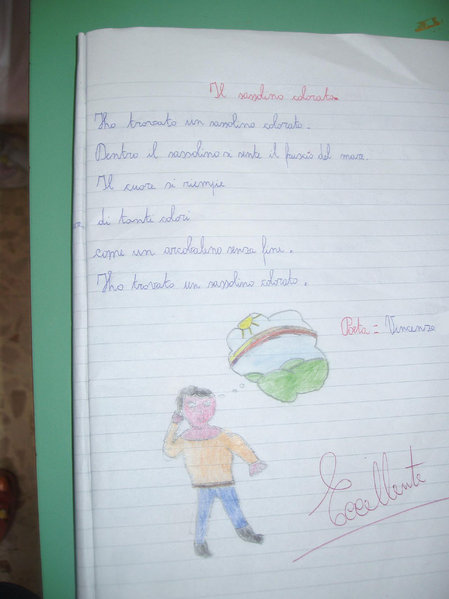 Il sassolino colorato.
Ho trovato un sassolino colorato.
Dentro il sassolino si sente il fruscio del mare.
Il cuore si riempie
di tanti colori
come un arcobalino senza fine.
Ho trovato un sassolino colorato.
Poeta = Vincenzo
Eccellente